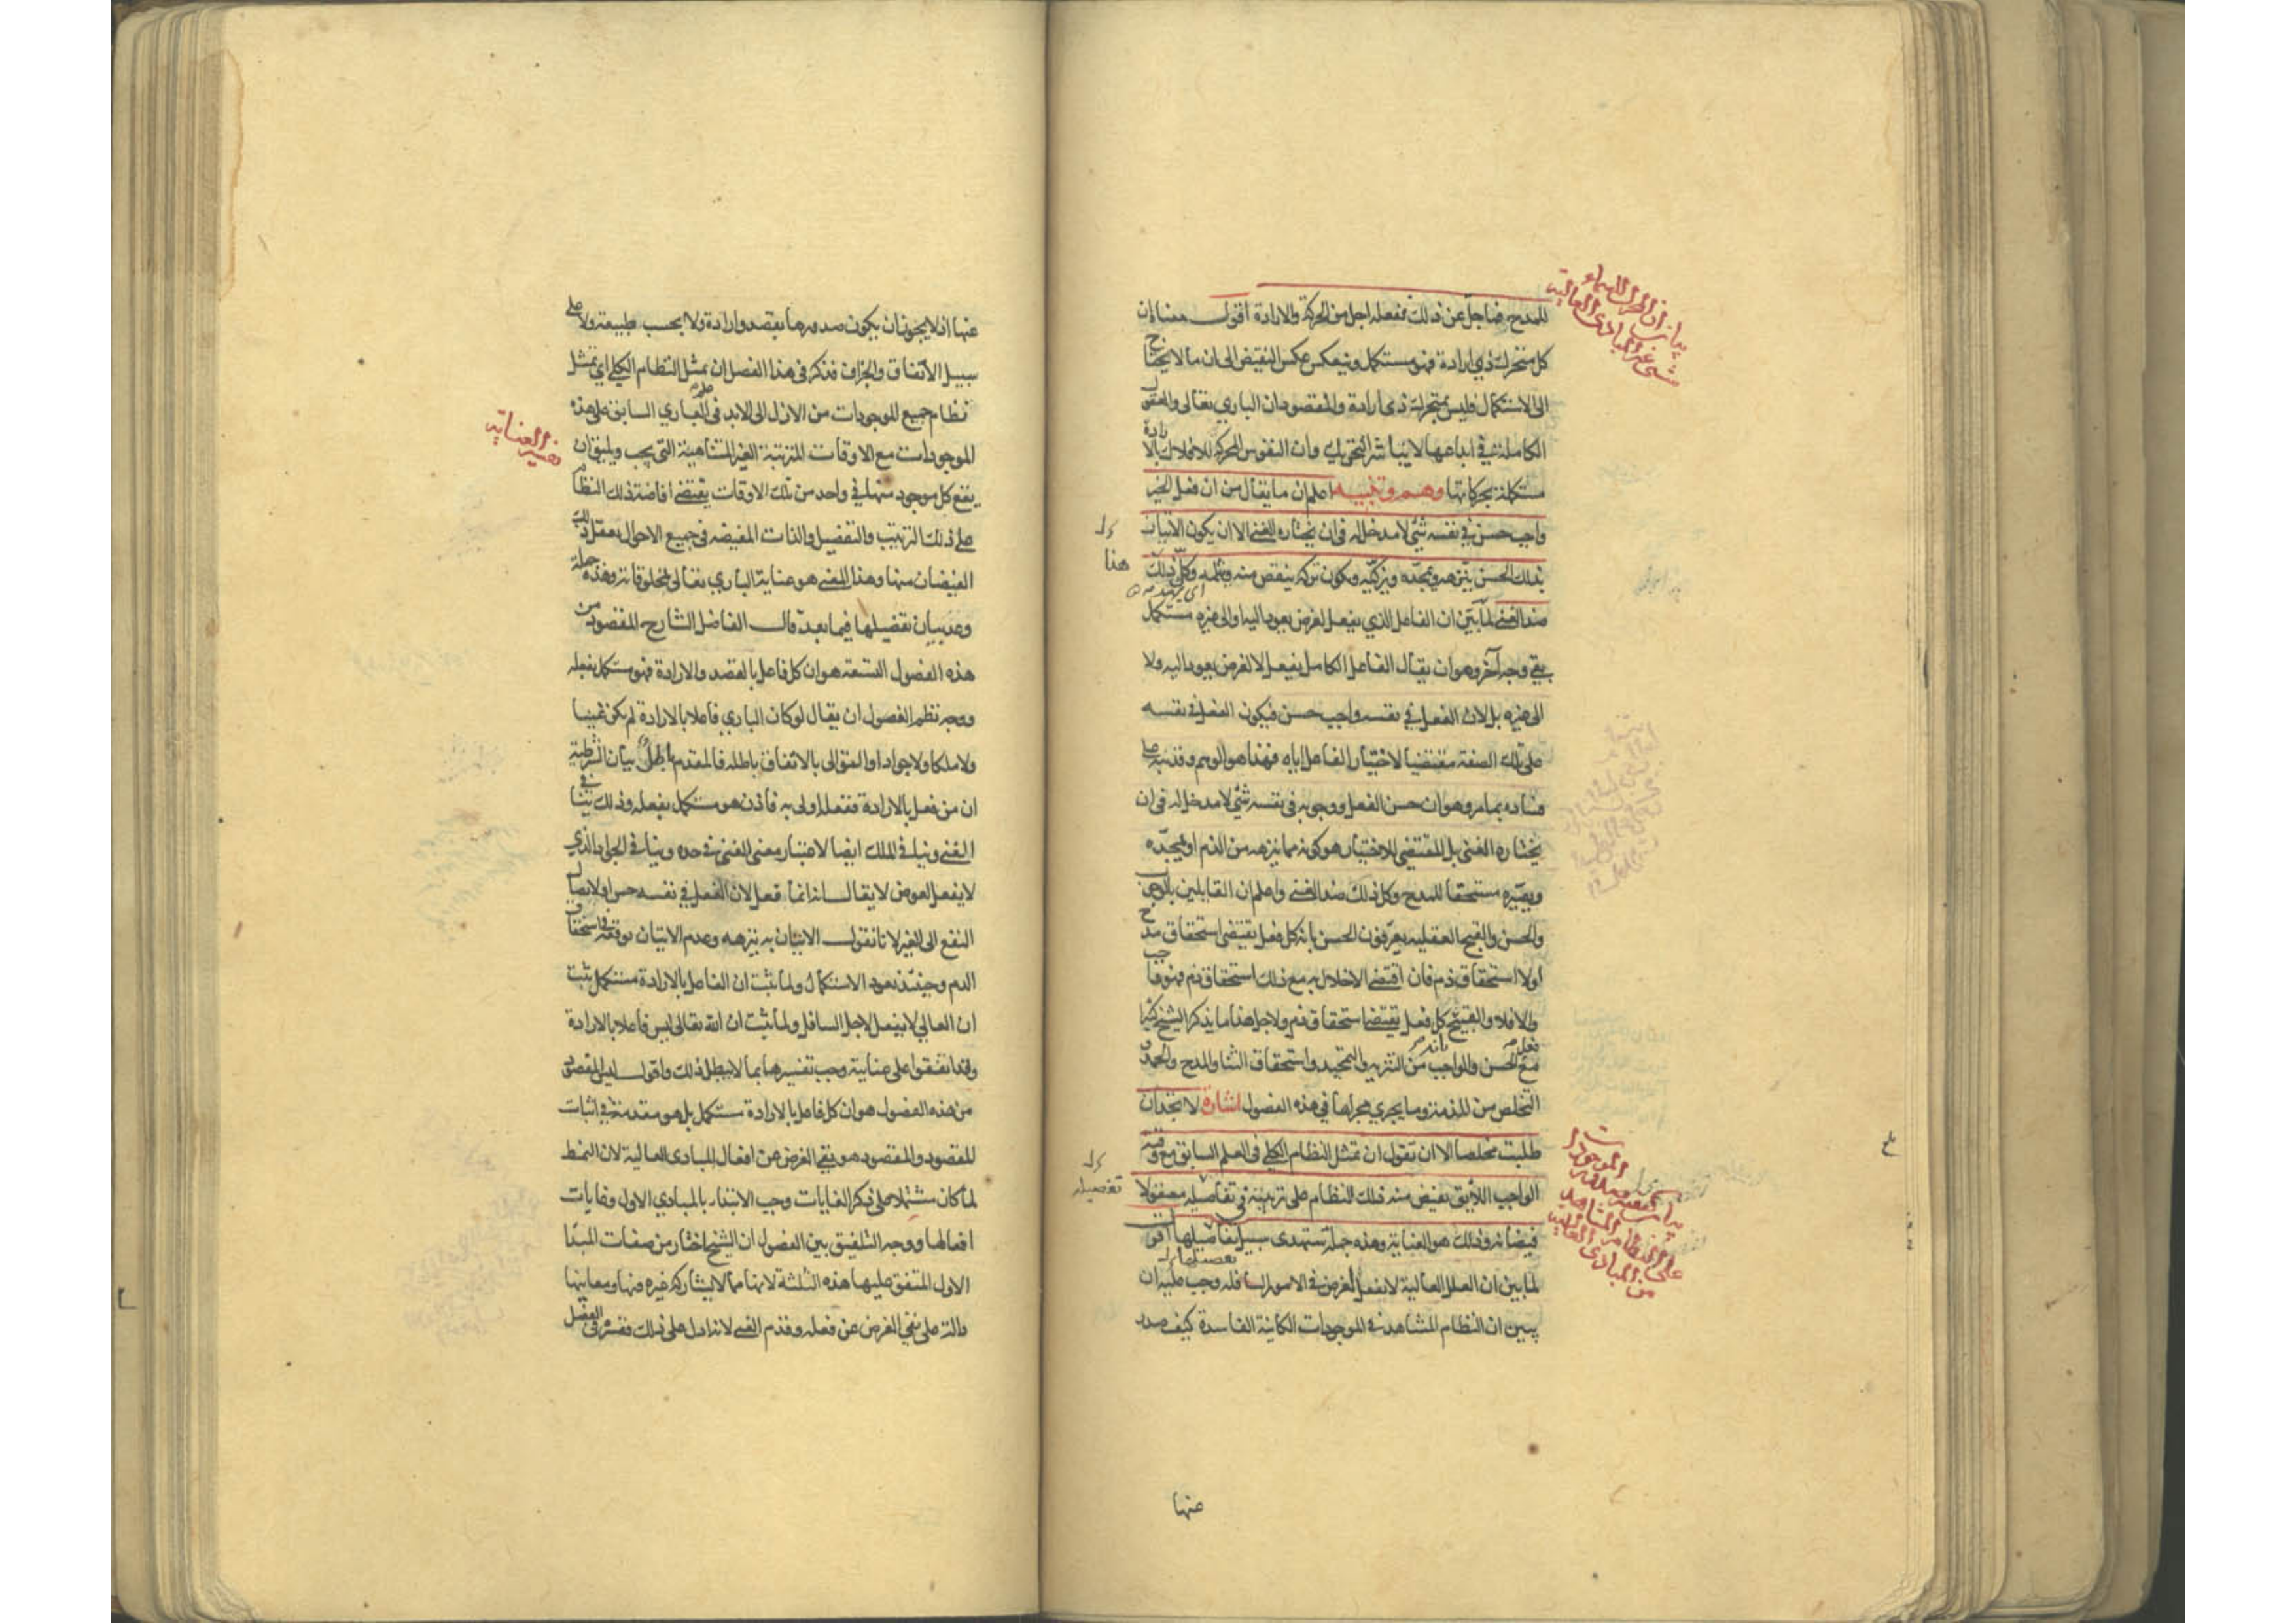 للمدح فما جل عن ذلك ففعله اجل من الحركة والارادة اقول معناه ان
كل متحرك ذي ارادة فهو مستكمل وينعكس عكس النقيض الى ان ما لا يحتاج
الى الاستكمال فليس بمتحرك ذى ارادة والمقصود ان الباري تعالى والعقول
الكاملة في ابداعها لا يباشر التحريك وان النفوس المحركة للافلاك بالارادة
مستكملة بحركاتها وهم وتنبيه اعلم ان ما يقال من ان فعل الخير
واجب حسن في نفسه شئ لا مدخل له فى ان يختاره الغنى الا ان يكون الاتيان
بذلك الحسن ينزهه ويمجده ويزكيه ويكون تركه ينقص منه ويثلمه وكل ذلك
ضد الغنى لما بين ان الفاعل الذي يفعل لغرض يعود اليه والى غيره مستكمل
بقي وجه آخر وهو ان يقال الفاعل الكامل يفعل لا لغرض يعود اليه ولا
الى غيره بل لان الفعل في نفسه واجب حسن فيكون الفعل في نفسه
على تلك الصفة مقتضيا لاختيار الفاعل اياه فهذا هو الوهم وقد نبه على
فساده بما مر وهو ان حسن الفعل ووجوبه فى نفسه شئ لا مدخل له فى ان
يختاره الغنى بل المقتضى للاختيار هو كونه مما ينزهه من الذم او يمجده
ويصيره مستحقا للمدح وكل ذلك ضد الغنى واعلم ان القايلين بالوجوب
والحسن والقبح العقلية يعرفون الحسن بانه كل فعل يقتضى استحقاق مدح
اولا استحقاق ذم فان اقتضى الاخلال به مع ذلك استحقاق ذم فهو واجب
والا فلا والقبيح كل فعل يقتضى استحقاق ذم ولاجل هذا ما يذكر الشيخ كثيرا
مع الحسن والواجب من التنزيه والتمجيد واستحقاق الثنا والمدح والحمد و
التخلص من المذمة وما يجري مجراها في هذه الفصول اشارة لا تجد ان
طلبت مخلصا الا ان تقول ان تمثل النظام الكلي فى العلم السابق مع وقته
الواجب اللايق يفيض منه ذلك النظام على ترتيبه في تفاصيله معقولا
فيضانه وذلك هو العناية وهذه جملة ستهدى سبيل تفاصيلها اقول
لما بين ان العلل العالية لا تفعل لغرض في الامور السافلة وجب عليه ان
يبين ان النظام المشاهد في الموجودات الكاينة الفاسدة كيف صدر
عنها
هذا
تفصيله
عنها اذ لا يجوز ان يكون صدورها بقصد وارادة ولا بحسب طبيعة ولا على
سبيل الاتفاق والجزاف فذكر فى هذا الفصل ان تمثل النظام الكلي اي تمثل
نظام جميع الموجودات من الازل الى الابد فى علم الباري السابق على هذه
الموجودات مع الاوقات المترتبة الغير المتناهية التي يجب ويليق ان
يقع كل موجود منها في واحد من تلك الاوقات يقتضى افاضة ذلك النظام
على ذلك الترتيب والتفصيل والذات المفيضة فى جميع الاحوال يعقل ذلك
الفيضان منها وهذا المعنى هو عناية الباري تعالى لمخلوقاته وهذه جملة
وعد ببيان تفصيلها فيما بعد قال الفاضل الشارح المقصود من
هذه الفصول التسعة هو ان كل فاعل بالقصد والارادة فهو مستكمل بفعله
ووجه نظم الفصول ان يقال لو كان الباري فاعلا بالارادة لم يكن غنيا
ولا ملكا ولا جوادا والتوالى بالاتفاق باطلة فالمقدم باطل بيان الشرطية
ان من فعل بالارادة ففعله اولى به فاذن هو مستكمل بفعله وذلك ينافى
الغنى وينافى الملك ايضا لاعتبار معنى الغنى في حده وينافى الجواد الذي
لا يفعل لعوض لا يقال انه انما فعل لان الفعل في نفسه حسن او لايصال
النفع الى الغير لانا نقول الاتيان به ينزهه وعدم الاتيان يوقعه فى استحقاق
الذم وحينئذ يعود الاستكمال ولما ثبت ان الفاعل بالارادة مستكمل ثبت
ان العالي لا يفعل لاجل السافل ولما ثبت ان الله تعالى ليس فاعلا بالارادة
وقد اتفقوا على عناية وجب تفسيرها بما لا يبطل ذلك واقول ليس المقصود
من هذه الفصول هو ان كل فاعل بالارادة مستكمل بل هو مقدمة في اثبات
المقصود والمقصود هو نفي الغرض عن افعال المبادى العالية لان النمط
لما كان مشتملا على ذكر الغايات وجب الابتداء بالمبادي الاول وغايات
افعالها ووجه التلفيق بين الفصول ان الشيخ اختار من صفات المبدا
الاول المتفق عليها هذه الثلثة لانها مما لا يشاركه غيره فيها ومعانيها
دالة على نفي الغرض عن فعله وقدم الغنى لانه ادل على ذلك ففسره في الفصل
تفسير العناية